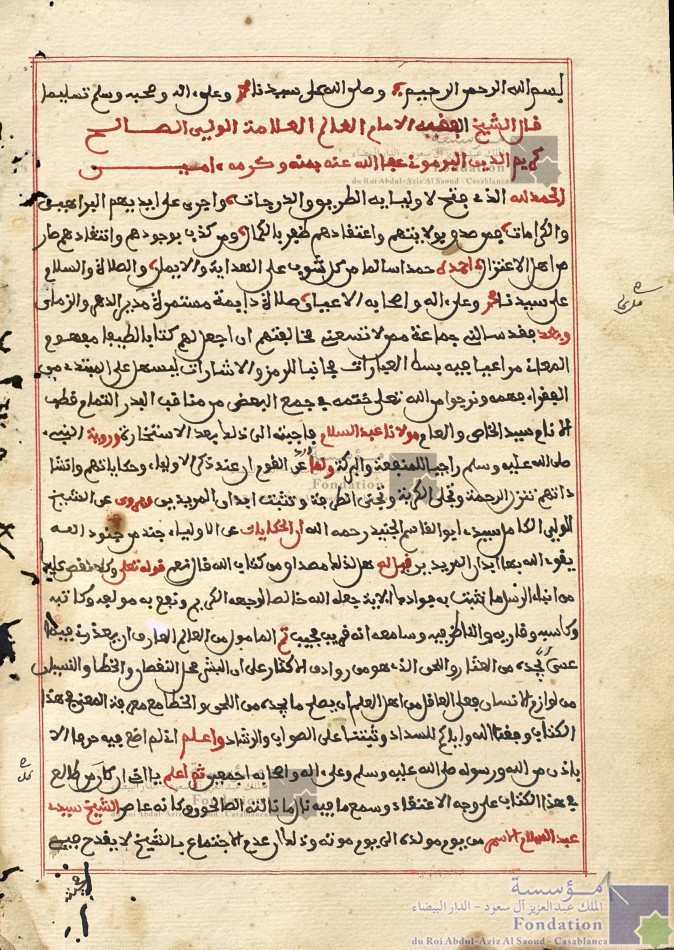 بسم الله الرحمن الرحيم وصلى الله على سيدنا محمد وعلى اله وصحبه وسلم تسليما
قال الشيخ الفقيه الامام العالم العلامة الولي الصالح
كريم الدين البرموني عفا الله عنه بمنه وكرمه امين
الحمد لله الذي فتح لاوليايه الطريق والدرجات واجرى على ايديهم البراهين
والكرامات فمن صدق بولايتهم واعتقادهم ظفر بالكمال ومن كذب بوجودهم وانتقادهم صار
من اهل الاعتزال احمده حمدا سالما من كل شوب على الهداية والايمان والصلاة والسلام
على سيدنا محمد وعلى اله واصحابه الاعيان صلاة دايمة مستمرة مدى الدهر والزمان
وبعد فقد سالني جماعة ممن لا تسعني مخالفتهم ان اجعل لهم كتابا لطيفا مفهوم
المعاني مراعيا فيه بسط العبارات مجانبا للرمز والاشارات ليسهل على المبتدي من
الفقراء فهمه ونرجو من الله تعلى ختمه في جمع البعض من مناقب البدر التمام قطب
الانام سيد الخاص والعام مولانا عبد السلام فاجبته الى ذلك بعد الاستخارة وروية النبي
صلى الله عليه وسلم راجيا للمنفعة والبركة ولما ورد عن القوم ان عند ذكر الاولياء وحكاياتهم
تنزل الرحمة وتجلى الكربة وتثبت ابدان المريدين وهروي عن الشيخ
الولي الكامل سيدي ابو القاسم الجنيد رحمه الله ان الحكايات عن الاولياء جند من جنود الله
يقوي الله بها ابدان المريدين فقيل له هل لذلك مصداق من كتاب الله قال نعم قوله تعلى وكلا نقص عليك
من انباء الرسل ما نثبت به فوادك الاية جعله الله خالصا لوجهه الكريم ونفع به مولفه وكاتبه
وكاسبه وقاريه والناظر فيه وسامعه انه قريب مجيب ثم المامول من العالم العارف ان يعذرني فيما
عسى يجده من العثار واللحن الذي هو من روادف الاكثار على ان البشر محل النقص والخطا والنسيان
من لوازم الانسان فعلى العاقل من اهل العلم ان يصلح ما يجده من اللحن والخطا مع معرفة المعنى في هذا
الكتاب وفقنا الله واياكم للسداد وثبتنا على الصواب والرشاد واعلم اني لم اضع فيه حرفا الا
باذن من الله ورسوله صلى الله عليه وسلم وعلى اله واصحابه اجمعين ثم اعلم يا اخي ان كل من طالع
في هذا الكتاب على وجه الاعتقاد وسمع ما فيه نال ما نالته الصالحون وكانه عاصر الشيخ سيدي
عبد السلام الاسمر من يوم مولده الى يوم موته وذلك ان عدم الاجتماع بالشيخ لا يقدح فيه
مؤسسة
الملك عبد العزيز آل سعود - الدار البيضاء
Fondation
du Roi Abdul-Aziz Al Saoud - Casablanca